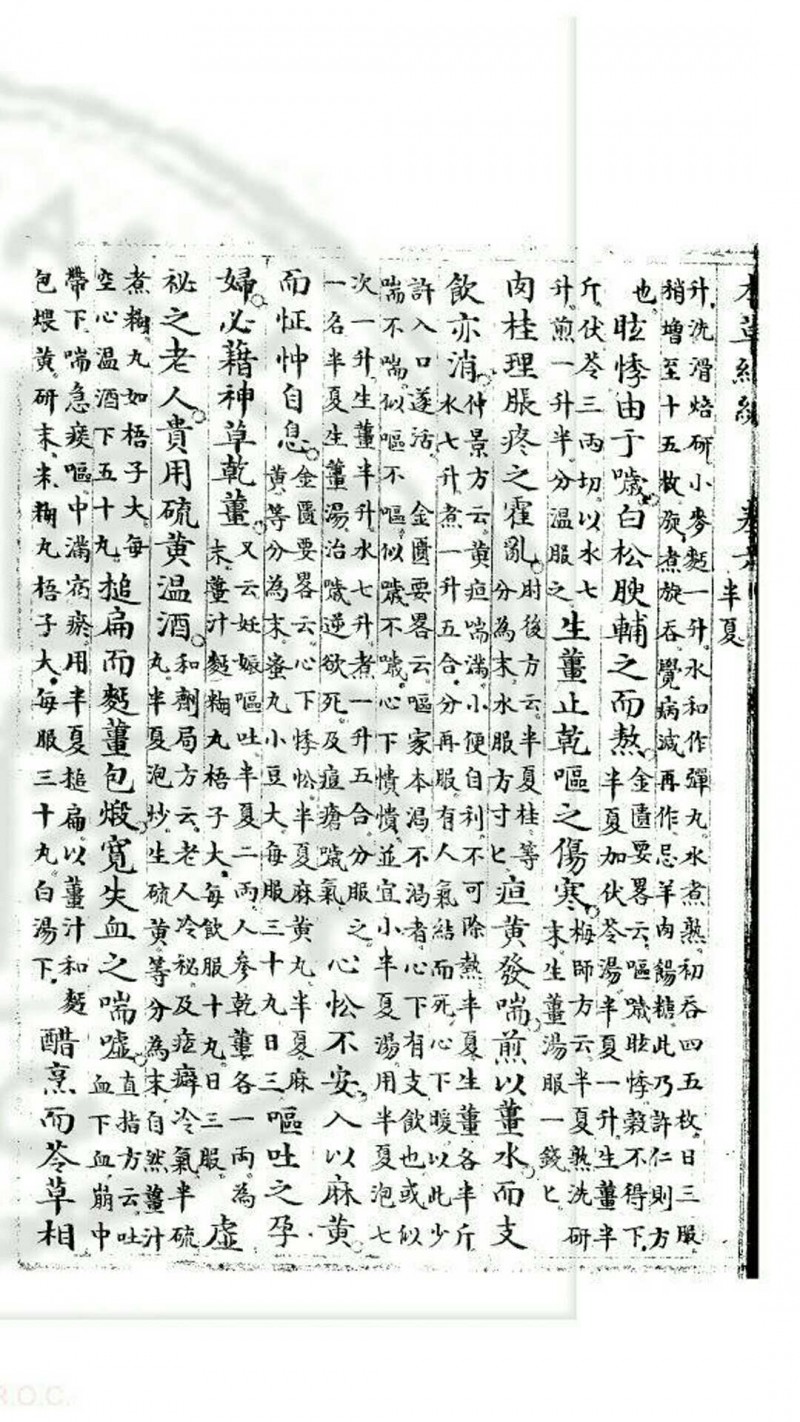 半夏
升洗滑焙研小麥麪一升水和作彈丸水煮熟初吞四五枚日三服
稍增至十五枚旋煮旋吞覺病減再作忌羊肉餳糖此乃許仁則方
也
眩悸由于噦白松腴輔之而熬
金匱要畧云嘔噦眩悸穀不得下
半夏加伏苓湯半夏一升生薑半
斤伏苓三兩切以水七
升煎一升半分温服之
生薑止乾嘔之傷寒
梅師方云半夏熟洗研
末生薑湯服一錢匕
肉桂理脹疼之霍亂
肘後方云半夏桂等
分為末水服方寸匕
疸黃發喘煎以薑水而支
飲亦消
仲景方云黃疸喘滿小便自利不可除熱半夏生薑各半斤
水七升煮一升五合分再服有人氣結而死心下暖以此少
許入口遂活 金匱要畧云嘔家本渴不渴者心下有支飲也或似
喘不喘似嘔不嘔似噦不噦心下憒憒並宜小半夏湯用半夏泡七
次一升生薑半升水七升煮一升五合分服之
一名半夏生薑湯治噦逆欲死及痘瘡噦氣
心忪不安入以麻黃
而怔忡自息
金匱要畧云心下悸忪半夏麻黃丸半夏麻
黃等分為末蜜丸小豆大每服三十丸日三
嘔吐之孕
婦必藉神草乾薑
又云妊娠嘔吐半夏二兩人參乾薑各一兩為
末薑汁麪糊丸梧子大每飲服十丸日三服
虛
祕之老人貴用硫黃温酒
和劑局方云老人冷祕及痃癖冷氣半硫
丸半夏泡炒生硫黃等分為末自然薑汁
煮糊丸如梧子大每
空心温酒下五十丸
搥扁而麪薑包煅寬失血之喘噓
直指方云吐
血下血崩中
帶下喘急痰嘔中滿宿瘀用半夏搥扁以薑汁和麪
包煨黃研末米糊丸梧子大每服三十丸白湯下
醋烹而苓草相
R.O.C.